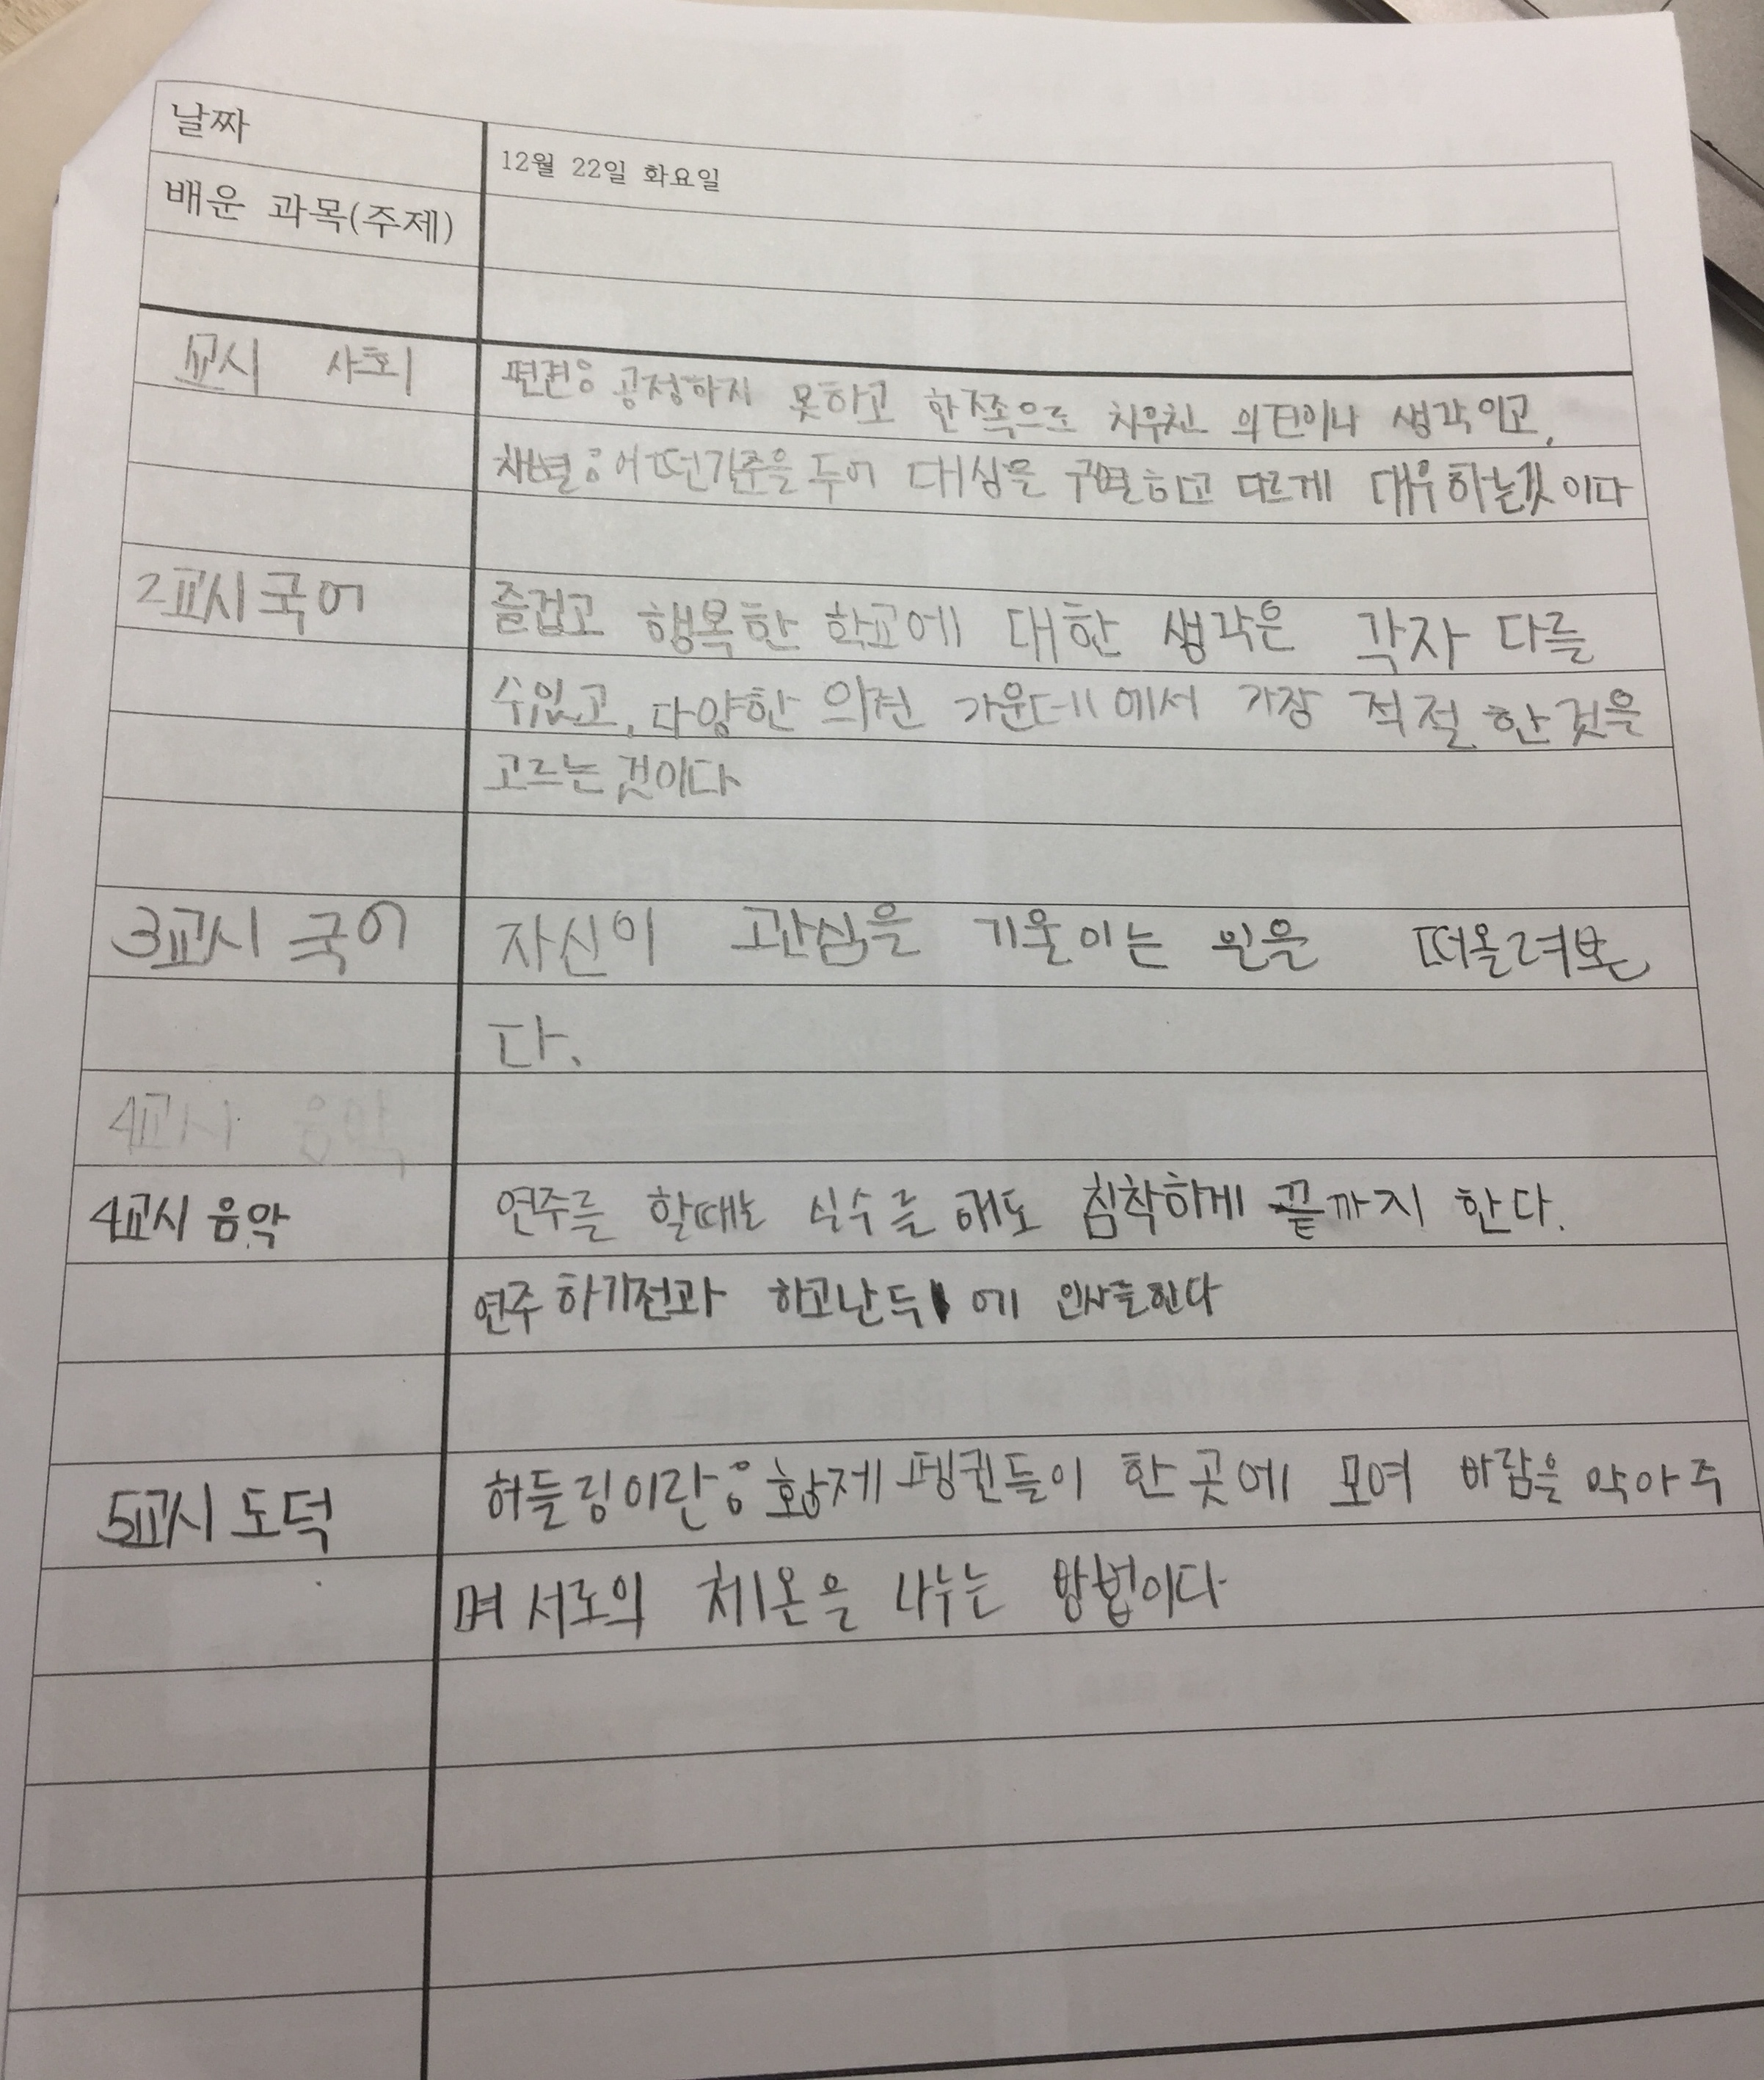 날짜 12월 22일 화요일
배운 과목(주제)
1교시 사회 편견: 공정하지 못하고 한쪽으로 치우친 의견이나 생각이고,
차별: 어떤기준을 두어 대상을 구별하고 다르게 대우하는것이다
2교시 국어 즐겁고 행복한 학교에 대한 생각은 각자 다를
수있고, 다양한 의견 가운데에서 가장 적절한것을
고르는것이다
3교시 국어 자신이 관심을 기울이는 일을 떠올려본
다.
4교시 음악
4교시 음악 연주를 할때는 실수를 해도 침착하게 끝까지 한다.
연주하기전과 하고난뒤에 인사를한다
5교시 도덕 허들링이란: 황제 펭귄들이 한 곳에 모여 바람을 막아주
며 서로의 체온을 나누는 방법이다